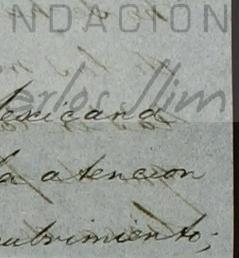 NDACIÓN
Carlos Slim
exicana
la atencion
cubrimiento;